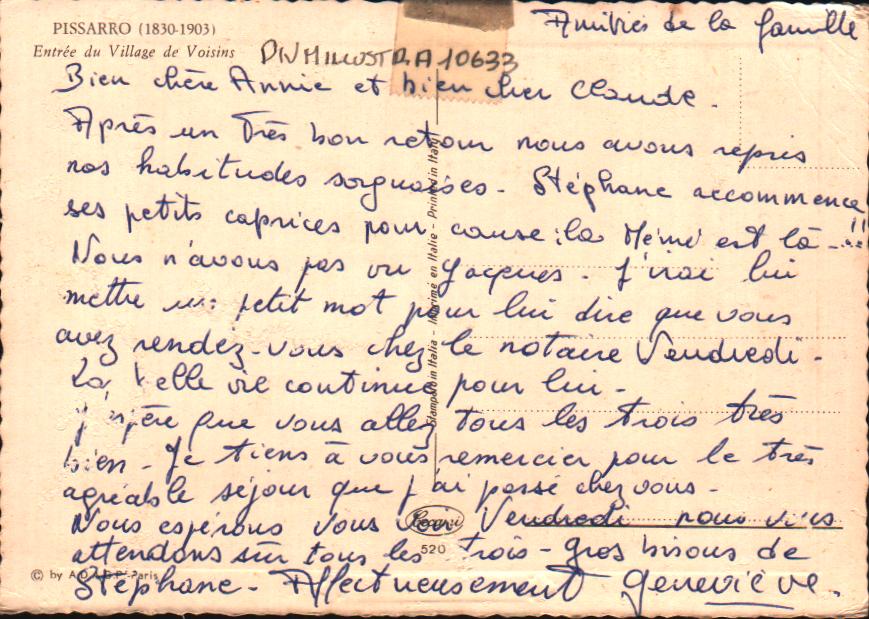 PISSARRO (1830-1903)
Entrée du Village de Voisins
DIVMILLUSTRA10633
Amitiés de la famille
Bien chère Annie et bien cher Claude.
Après un très bon retour nous avons repris
nos habitudes sorguaises - Stéphane accommence
ses petits caprices pour cause : la Mémé est là - ..!!
Nous n'avons pas vu Jacques - J'irai lui
mettre un petit mot pour lui dire que vous
avez rendez-vous chez le notaire Vendredi -
La belle vie continue pour lui -
J'espère que vous allez tous les trois très
bien - Je tiens à vous remercier pour le très
agréable séjour que j'ai passé chez vous -
Nous espérons vous voir Vendredi nous vous
attendons sur tous les trois - gros bisous de
Stéphane - Affectueusement Geneviève.
Stampato in Italia - Imprimé en Italie - Printed in Italy
520
© by A.D.A.G.P. Paris